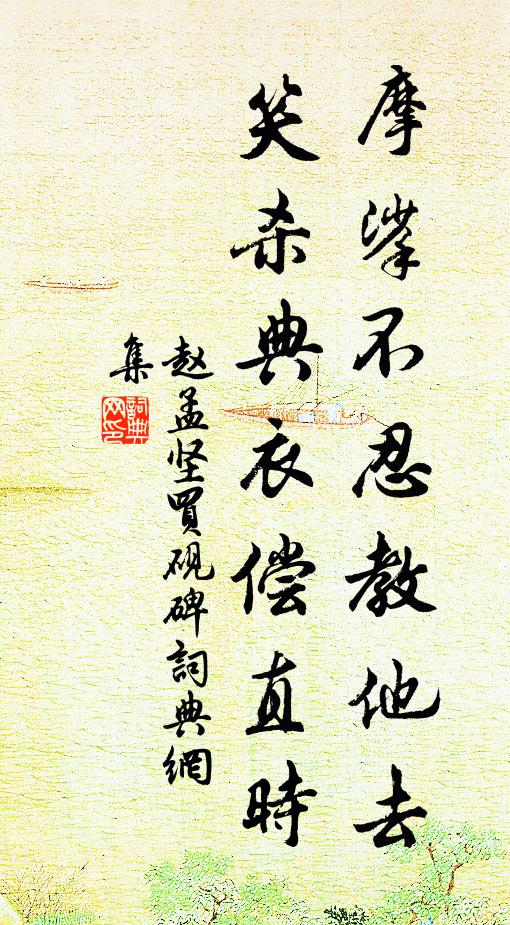 摩挲不忍教他去
笑杀典衣偿直时
赵孟坚買砚碑詞典網
集
詞典網印